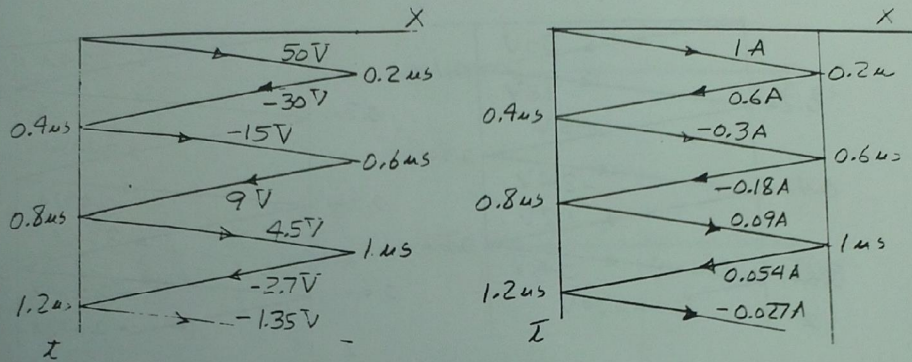 X
50V
0.2us
-30V
0.4us
-15V
0.6us
9V
0.8us
4.5V
1us
-2.7V
1.2us
-1.35V
t
X
1A
0.2u
0.6A
0.4us
-0.3A
0.6us
-0.18A
0.8us
0.09A
1us
0.054A
1.2us
-0.027A
t